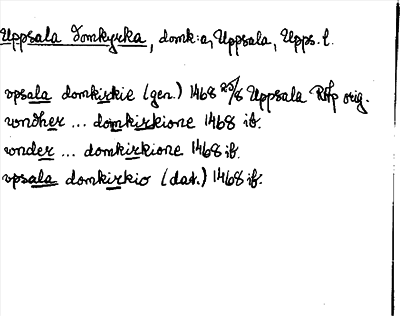 Uppsala domkyrka, domk:a, Uppsala, Upps. l.
vpsala domkirkie (gen.) 1468 25/8 Uppsala RAp orig.
vondher ... domkirkione 1468 ib.
vonder ... domkirkione 1468 ib.
vpsala domkirkio (dat.) 1468 ib.